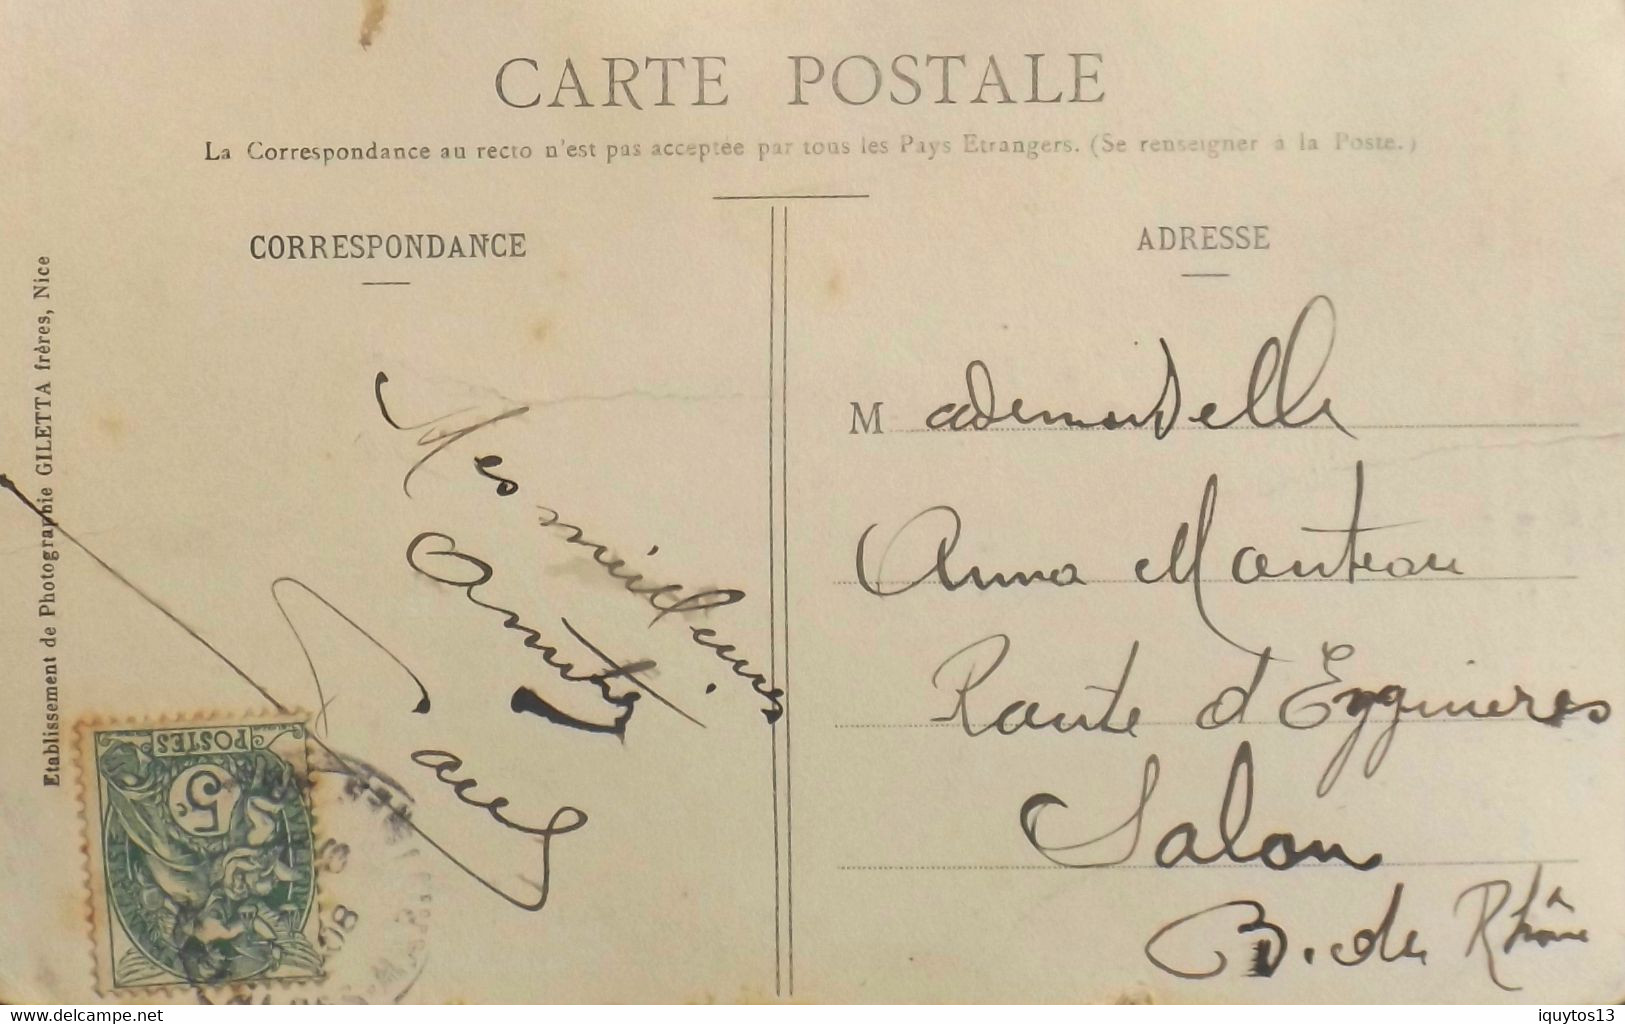 CARTE POSTALE
La Correspondance au recto n'est pas acceptée par tous les Pays Etrangers. (Se renseigner à la Poste.)
CORRESPONDANCE
Etablissement de Photographie GILETTA frères, Nice
Mes meilleures
amitiés
POSTES
5c
08
ADRESSE
Mademoiselle
Anna Monteau
Route d'Eyguieres
Salon
B. du Rhône
www.delcampe.net
iquytos13